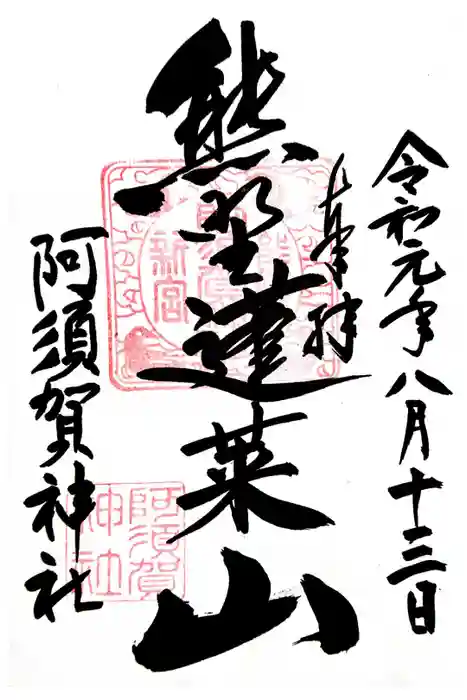 令和元年八月十三日
奉拝
熊野蓬莱山
阿須賀神社
新宮
阿須賀
神社